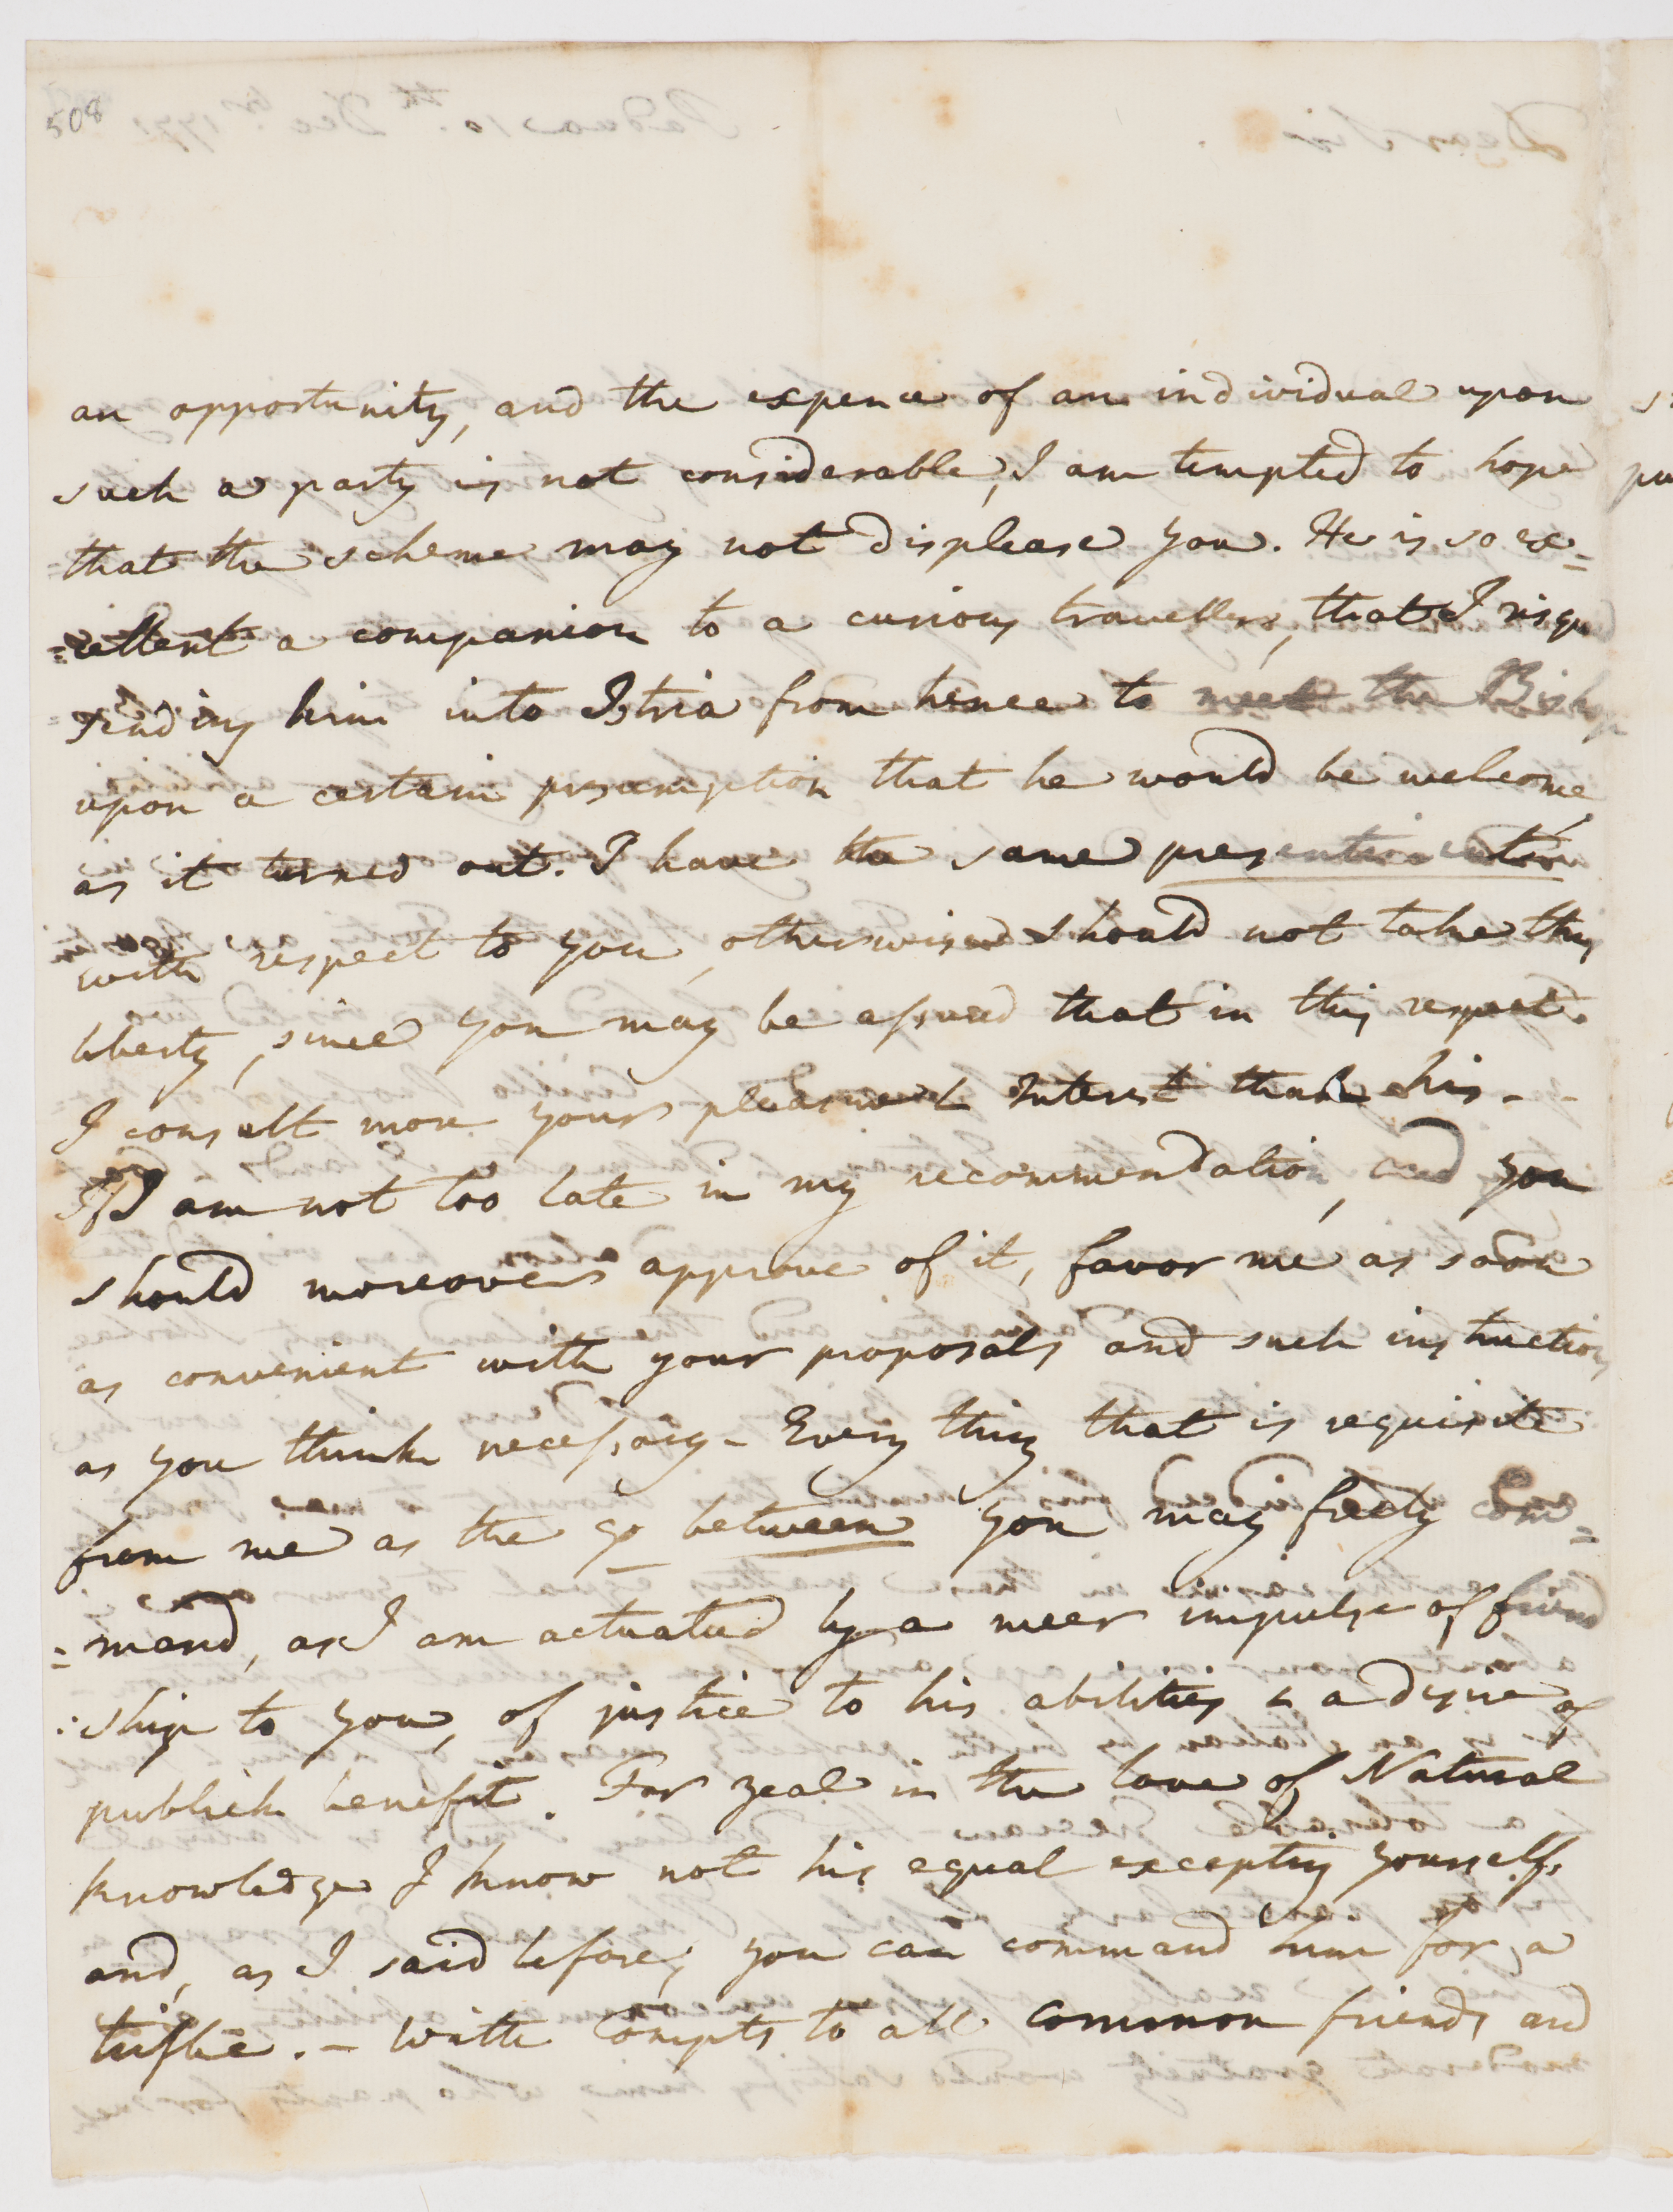 508
an opportunity, and the expence of an individual upon
such a party is not considerable, I am tempted to hope
that the scheme may not displease you. He is so ex=
=cellent a companion to a curious traveller, that I risqu
sending him into Istria from hence to meet the Bishop
upon a certain presumption that he would be welcome
as it turned out. I have the same
with respect to you, otherwise I should not take this
liberty, since you may be assured that in this respect
I consult more your pleasure & Interest than his. -
If I am not too late in my recommendation, and you
should moreover approve of it, favor me as soon
as convenient with your proposals and such instructions
as you think necessary - Every thing that is requisite
from me as the go between you may freely com=
=mand, as I am actuated by a meer impulse of friend
:ship to you, of justice to his abilities & a desire of
publick benefit. For zeal in the love of Natural
knowledge I know not his equal excepting yourself,
and, as I said before, you can command him for a
trifle. - With Compts to all common friends and